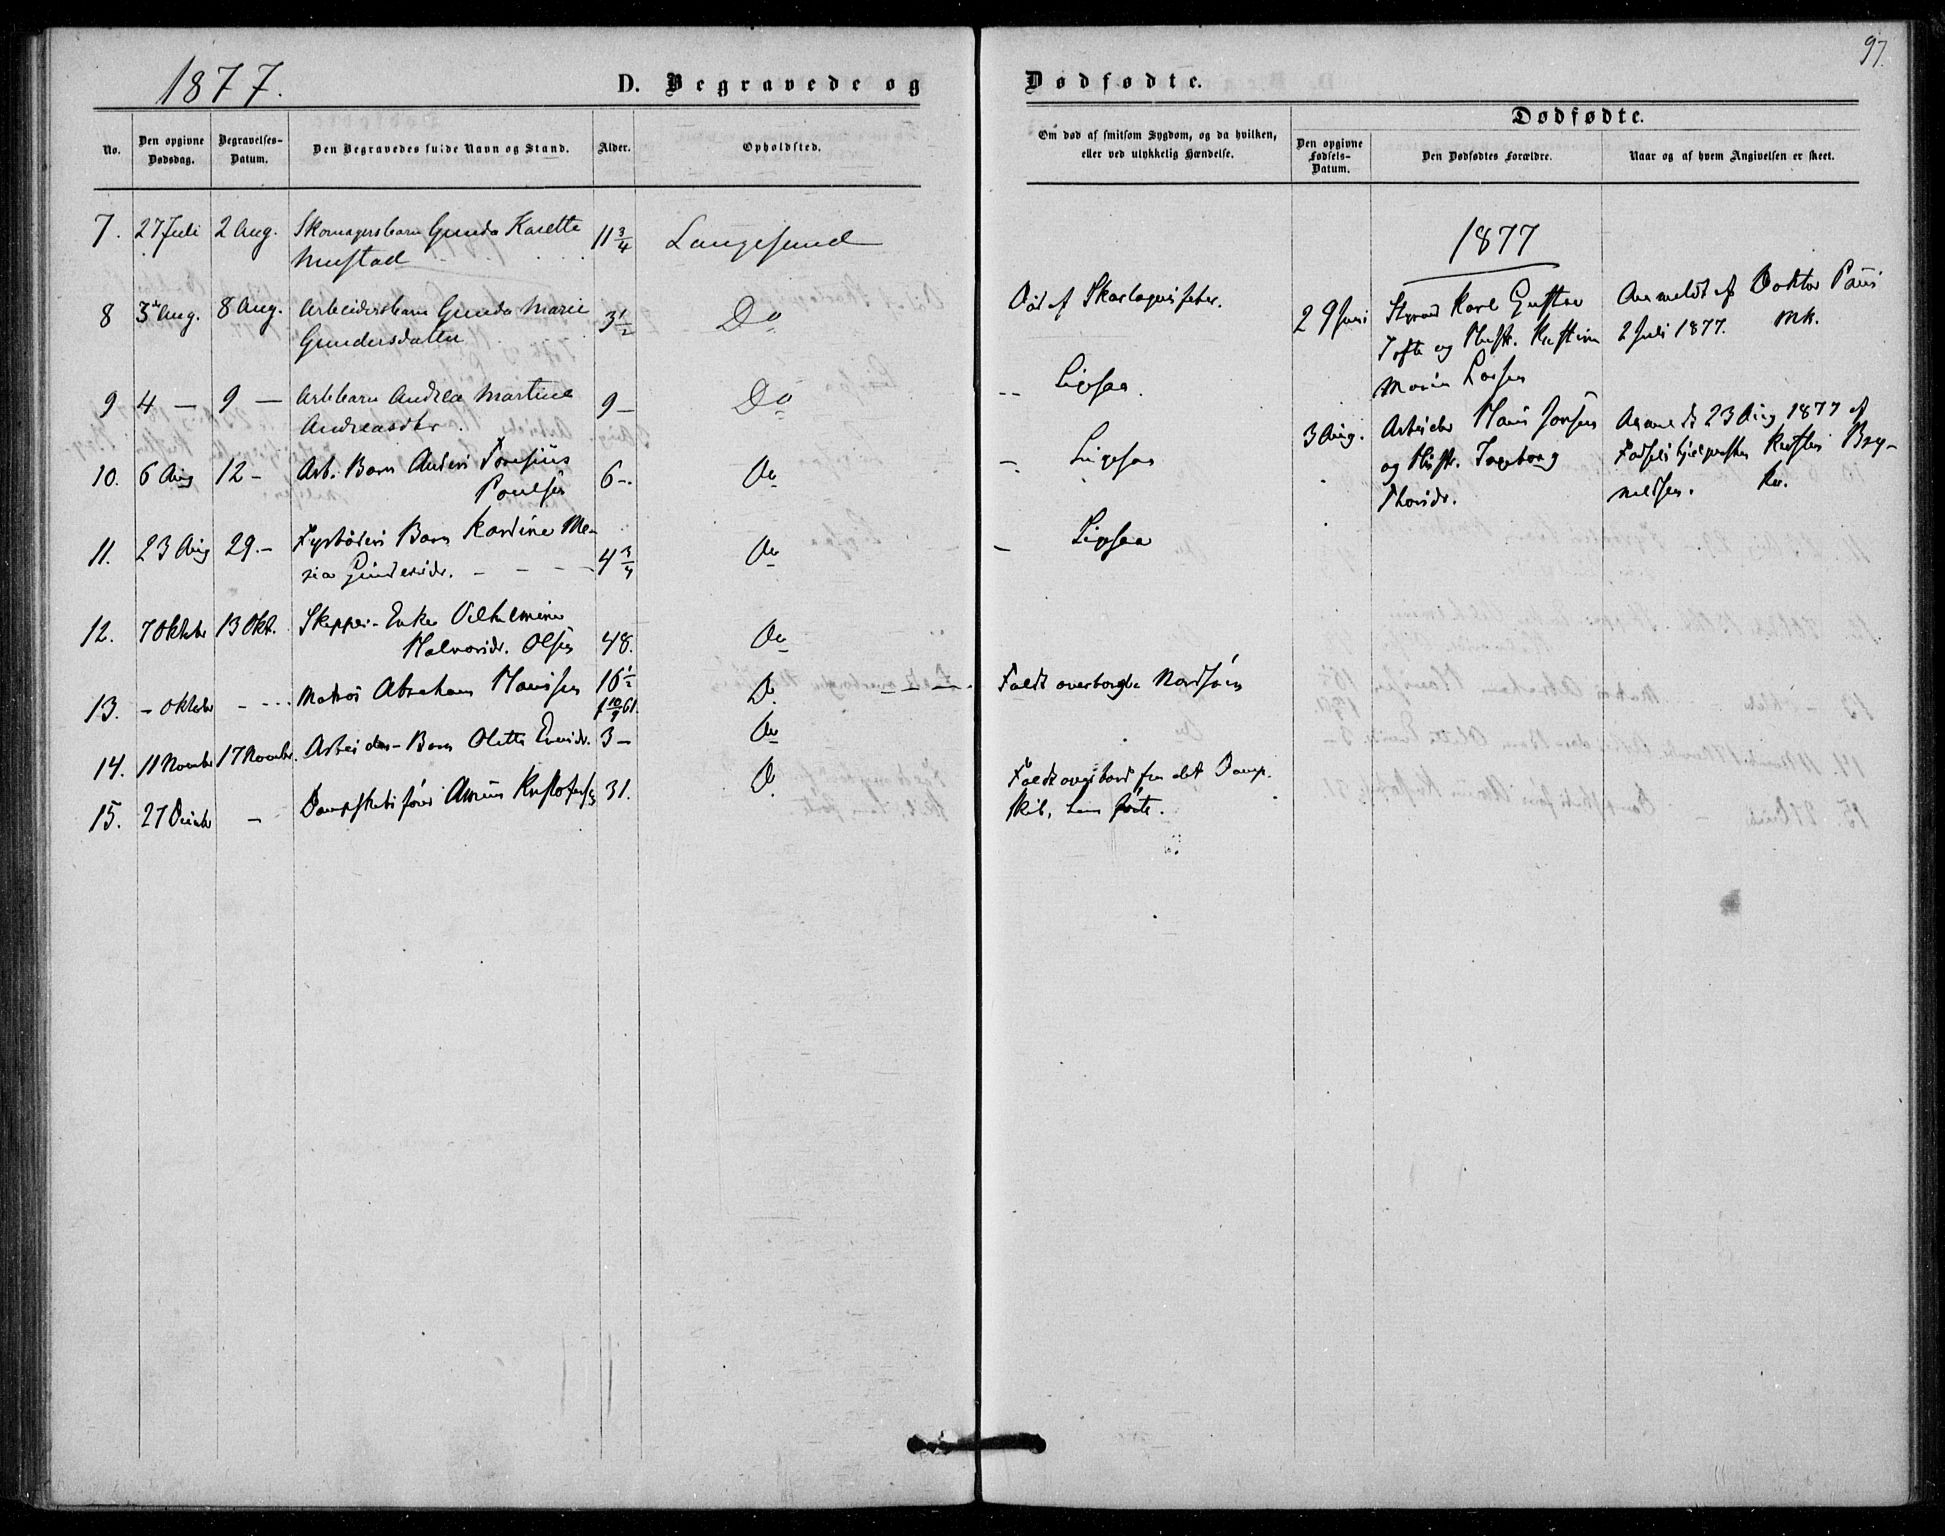 97.
1877.
D. Begravede og
Dødfødte.
No.
Den opgivne Dødsdag.
Begravelses-Datum.
Den Begravedes fulde Navn og Stand.
Alder.
Opholdsted.
Om død af smitsom Sygdom, og da hvilken,
eller ved ulykkelig Hændelse.
Dødfødte.
Den opgivne Fødsels-Datum.
Den Dødfødtes Forældre.
Naar og af hvem Angivelsen er skeet.
7. 27 Juli 2 Aug. Skomagersbarn Gunda Karette 11 3/4 Langesund
Mustad
8 3die Aug. 8 Aug. Arbeidersbarn Gunda Marie 3 1/2 Do Død af Skarlagensfeber.
Gundersdatter
9 4 — 9 — Arbbarn Andrea Martine 9 — Do -- Ligesaa.
Andreasdter
10. 6 Aug 12 - Arb. Barn Anders 6 -. Do - Ligesaa
Poulsen
11. 23 Aug 29. - Barn Kardine Ma- 4 3/4 Do - Ligesaa
ria Gundersdr. - - - -
12. 7 Oktober 13 Okt. Skipper-Enke Vilhelmine
Halvorsdr. Olsen 48. Do
13. - Oktober - --- Matros Abraham Hansen 16 1/2 D. Faldt overbord Nordsøen
f 10/9 61.
14. 11 November 17 November. Arbeider-Barn Olette 3 - Do
15. 27 Decbr - Dampskibsfører Kristofersen 31. D. Faldt overbord fra det Damp.
Skib, han førte.
1877
29 Juni Karl Gustav
Tofte og Hustr. Kristine
Maria Larsen
Anmeldt af Doktor Paus
2 Juli 1877. Mk.
3 Aug. Arbeider Hans Jonsen
og Hustr. Ingeborg
Thorsdr.
Anmeldt 23 Aug 1877 af
Kirsten Bry-
nildsen. Kv.